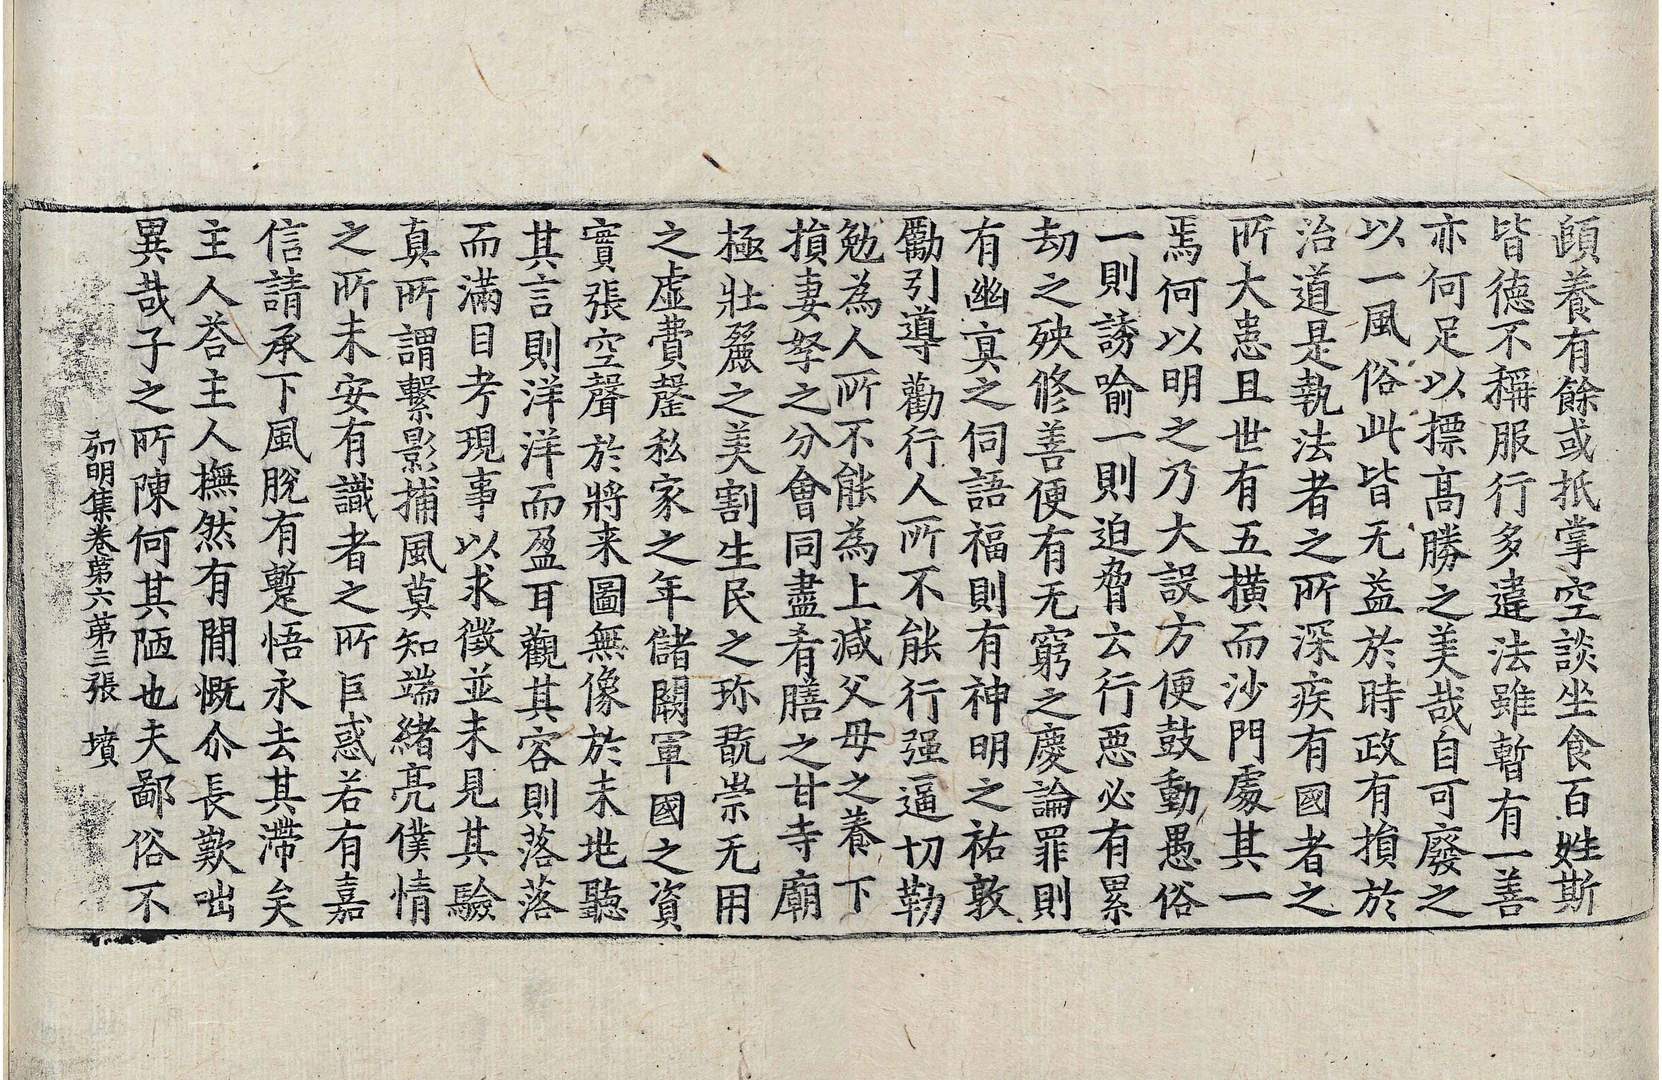 頤養有餘或抵掌空談坐食百姓斯
皆德不稱服行多違法雖暫有一善
亦何足以摽髙勝之美哉自可廢之
以一風俗此皆无益於時政有損於
治道是執法者之所深疾有國者之
所大患且世有五橫而沙門處其一
焉何以明之乃大設方便鼓動愚俗
一則誘喻一則迫脅云行惡必有累
劫之殃修善便有无窮之慶論罪則
有幽冥之伺語福則有神明之祐敦
勵引導勸行人所不能行强逼切勒
勉為人所不能為上減父母之養下
損妻孥之分會同盡肴膳之甘寺廟
極壯麗之美割生民之珎翫崇无用
之虛費罄私家之年儲闕軍國之資
實張空聲於將来圖無像於未地聽
其言則洋洋而盈耳觀其容則落落
而滿目考現事以求徵並未見其驗
真所謂繫影捕風莫知端緒亮僕情
之所未安有識者之所巨惑若有嘉
信請承下風脫有蹔悟永去其滯矣
主人荅主人撫然有間慨尒長歎咄
異哉子之所陳何其陋也夫鄙俗不
弘明集卷第六第三張 墳